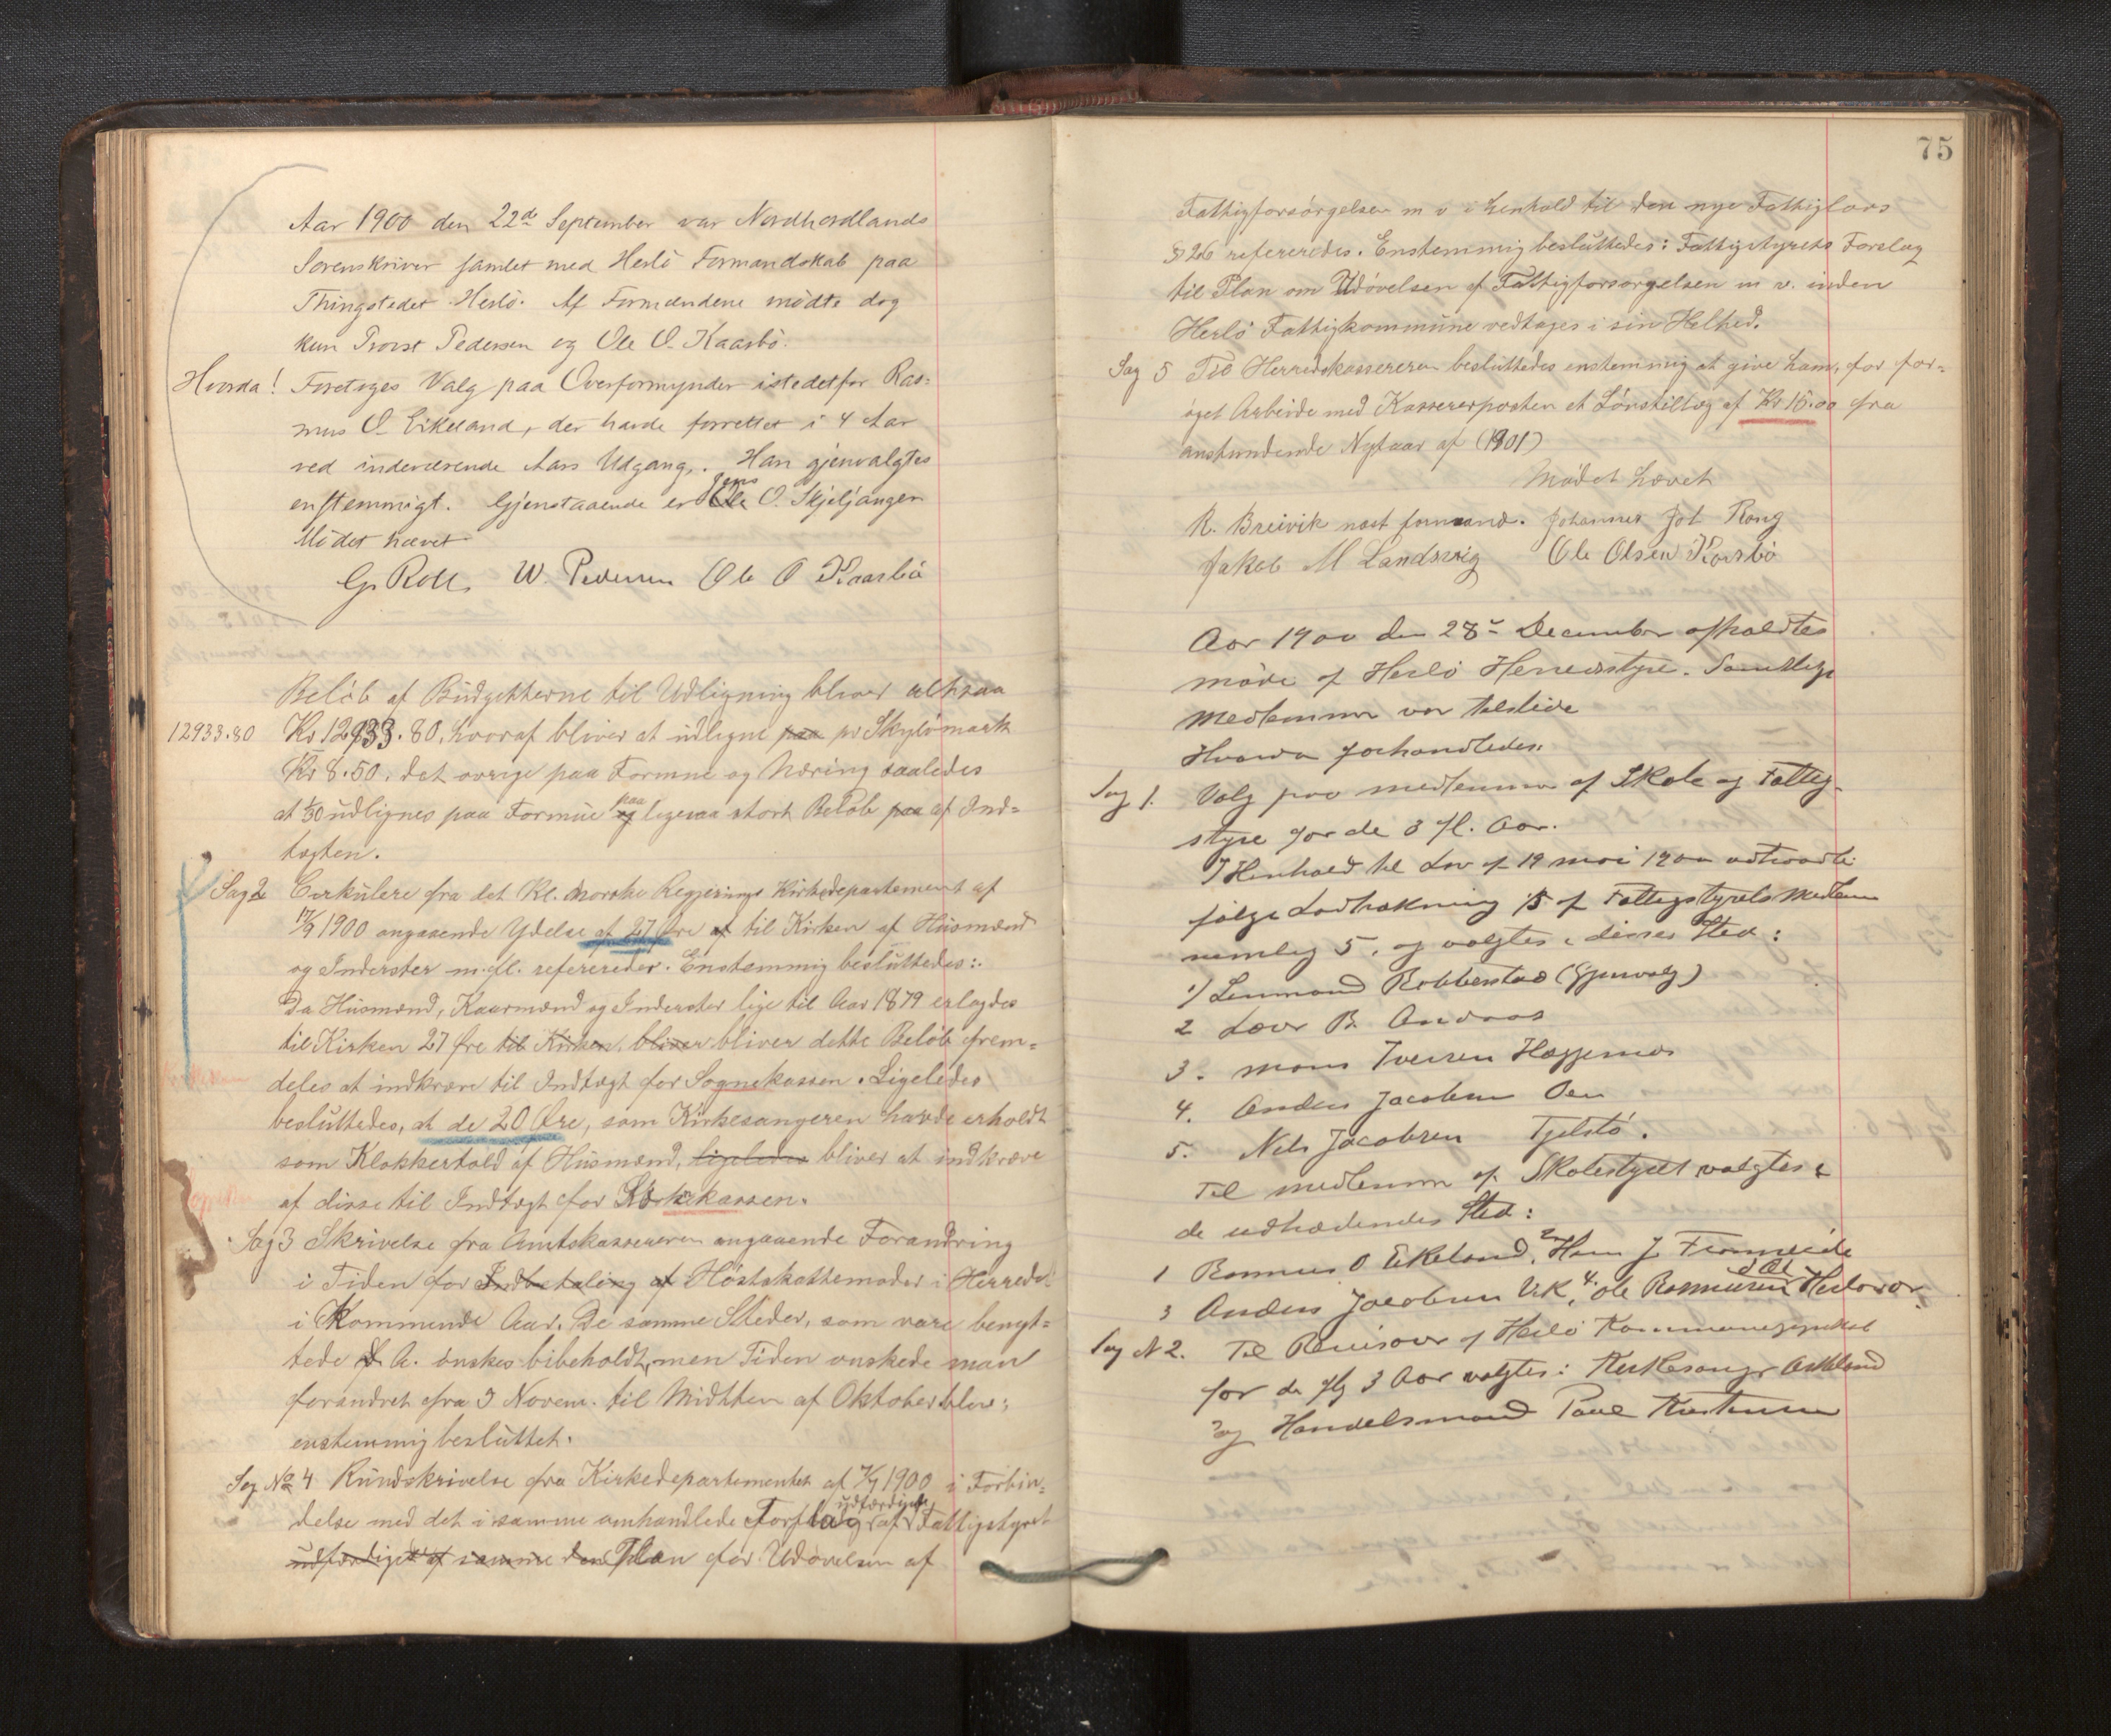 Aar 1900 den 22de September var Nordhordlands
Sorenskriver samlet med Herlö Formandskab paa
Thingstedet Herlö. Af Formændene mödte dog
kun Provst Pedersen og Ole O. Kaarbö.
Hvorda! Foretoges Valg paa Overformynder istedetfor Ras=
mus O. Eikeland, der havde forrettet i 4 Aar
ved indeværende Aars Udgang. Han gjenvalgtes
enstemmigt. Gjenstaaende er Ole Jens O. Skjeljanger
Mödet hævet
G. Roll W. Pedersen Ole O Kaarbö
Belöb af Büdgetterne til Udligning bliver altsaa
12933.80 Kr 12933.80, hvoraf bliver at udligne paa pr Skyldmark
Kr 8.50, det ovrige paa Formue og Næring saaledes
at 1/30 üdlignes paa Formüe og paa ligesaa stort Belöb paa af Ind=
tægten.
Sag 2 Cirkülere fra det Kl. Norske Regjerings Kirkedepartement af
17/9 1900 angaaende Ydelse af 27 Øre af til Kirken af Hüsmænd
og Inderster m.fl. refereredes. Enstemmig beslüttedes:
Da Hüsmænd, Kaarmænd og Inderster lige til Aar 1879 erlagdes
til Kirken 27 Øre til Kirken, bliver bliver dette Belöb frem=
deles at indkræve til Indtægt for Sognekassen. Ligeledes
beslüttedes, at de 20 Øre, som Kirkesangeren havde erholdt
som Klokkertold af Hüsmænd, ligeledes bliver at indkræve
af disse til Indtægt for Kirkekassen.
Sag 3 Skrivelse fra Amtskassereren angaaende Forandring
i Tiden for Indbetaling af Höstskattemöder i Herredet
i Kommende Aar. De samme Steder, som vare benyt=
tede d. A. önskes bibeholdt, men Tiden onskede man
forandret fra 3 Novem. til Midtten af Oktober blev;
enstemmig beslüttet.
Sag No 4 Ründskrivelse fra Kirkedepartementet af 7/7 1900 i Forbin=
delse med det i samme omhandlede Forslag udfærdiget af Fattigstyret
üdfærdiget af samme den Plan for Udövelsen af
75
Fattigforsörgelsen m v i Henhold til den nye Fattiglovs
§ 26 refereredes. Enstemmig beslüttedes: Fattigstyrets Forslag
til Plan om Udövelsen af Fattigforsorgelsen m v. inden
Herlö Fattigkommüne vedtages i sin Helhed.
Sag 5 Til Herredskassereren beslüttedes enstemmig at give ham, for for=
öget Arbeide med Kassererposten et Lönstillæg af Kr 15.00 fra
anstundende Nytaar af (1901)
Mödet hævet
R. Breivik næst formand. Johannes Joh Rong
Jakob M Landsvig Ole Olsen Kaarbö
Aar 1900 den 28de December afholdtes
möde af Herlö Herredsstyre. Samtlige
Medlemmer var tilstede
Hvorda forhandledes:
Sag 1. Valg paa medlemmer af Skole og Fattig-
styre for de 3 fl. Aar.
I Henhold til Lov af 19 mai 1900 udtraadte
följge Lodtrækning 1/3 af Fattigstyrets Medlem
nemlig 5, og valgtes i disses Sted:
1) Lensmand Robberstad (Gjenvalg)
2 Laur B. Andraas
3. Mons Iversen Hæggernæs
4. Anders Jacobsen Oen
5. Nels Jacobsen Tjelstö.
Til medlemmer af Skolestyret valgtes i
de udtrædendes Sted:
1 Rasmus O Eikeland, 2 Hans J. Fromreide
3 Anders Jacobsen Vik, 4. Ole Rasmussen Herlovær
Sag N 2. Til Revisorer af Herlö Kommuneregnskab
for de flg 3 Aar valgtes: Kirkesanger Askeland
og Handelsmand Paul Kristensen